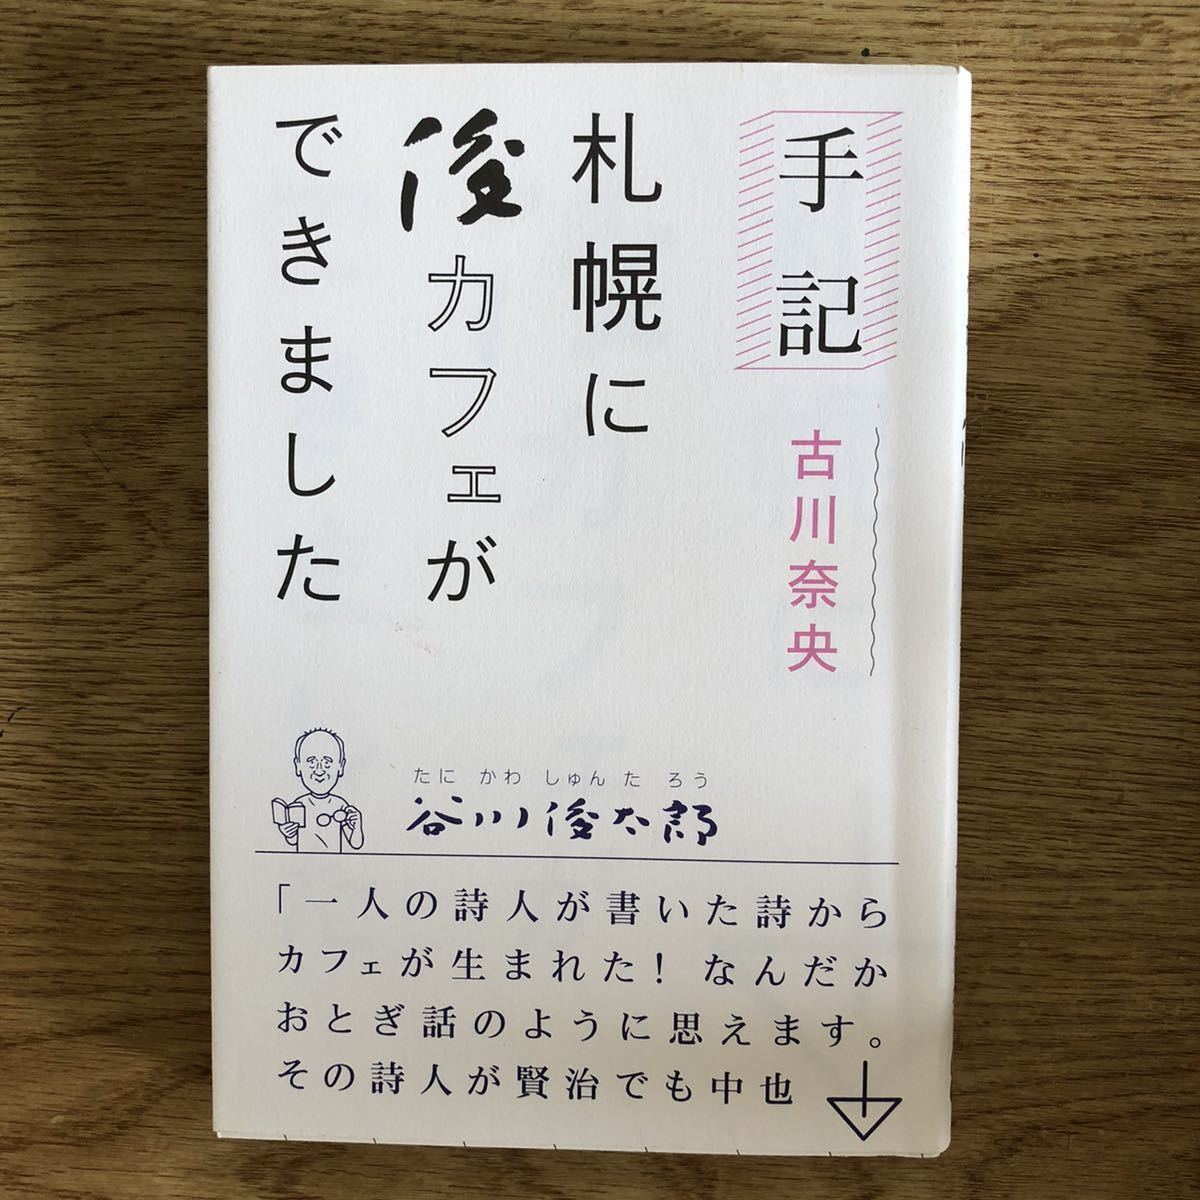 手記
古川奈央
札幌に
俊カフェが
できました
たにかわしゅんたろう
谷川俊太郎
「一人の詩人が書いた詩から
カフェが生まれた！なんだか
おとぎ話のように思えます。
その詩人が賢治でも中也